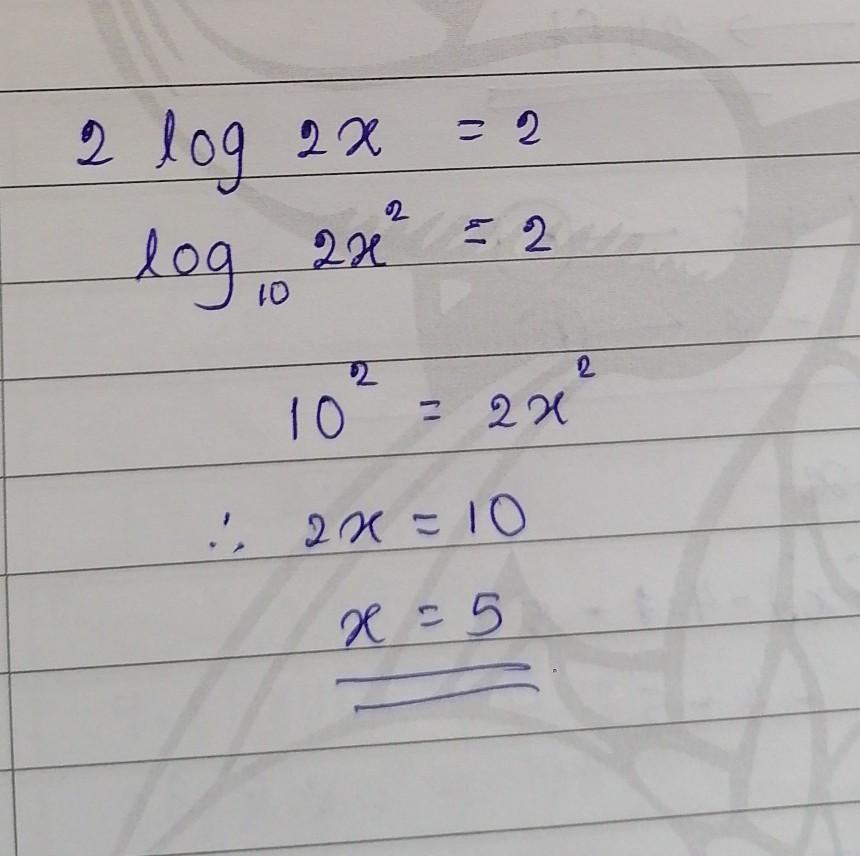 2 log 2x = 2
log₁₀ 2x² = 2
10² = 2x²
∴ 2x = 10
x = 5